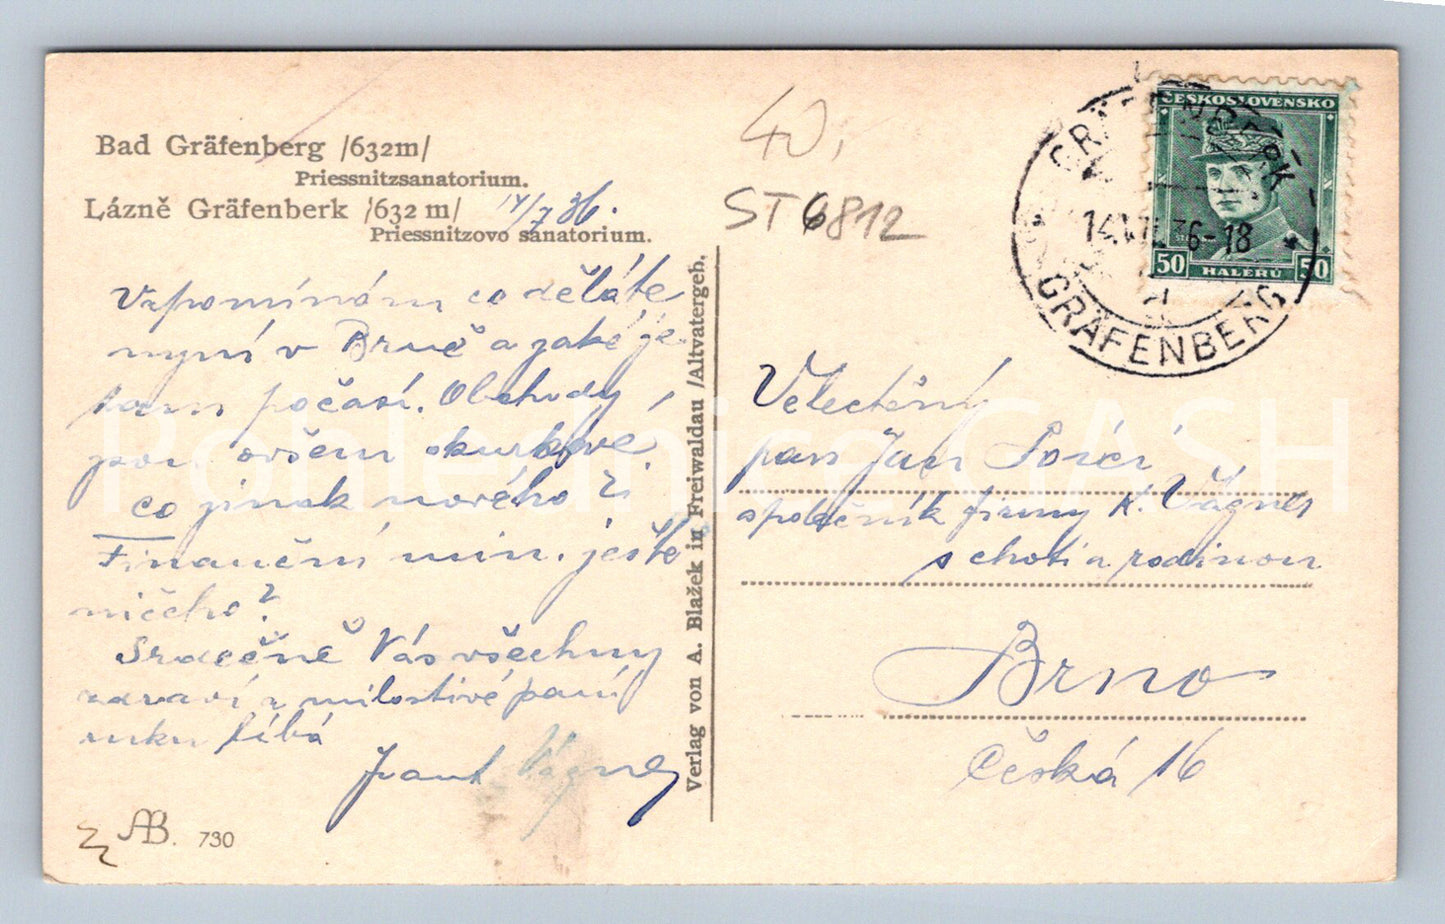 Bad Gräfenberg /632m/
Priessnitzsanatorium.
Lázně Gräfenberk /632 m/
Priessnitzovo sanatorium.
14/7 36.
Vzpomínám co děláte
nyní v Brně a jaké je
tam počasí. Obchody
jsou ovšem
co jinak nového?
Finanční min. ještě
ničeho?
Srdečně Vás všechny
zdraví a milostivé paní
ruku líbá
Frant Vágner
AB. 730
Verlag von A. Blažek in Freiwaldau /Altvatergeb.
40,
ST 6812
ČESKOSLOVENSKO
50 HALÉŘŮ 50
GRÄFENBERK
14.VII.36-18
GRÄFENBERG
Velectěný
pan Jan
společník firmy K. Vágner
s chotí a rodinou
Brno
Česká 16
Pohlednice GASH